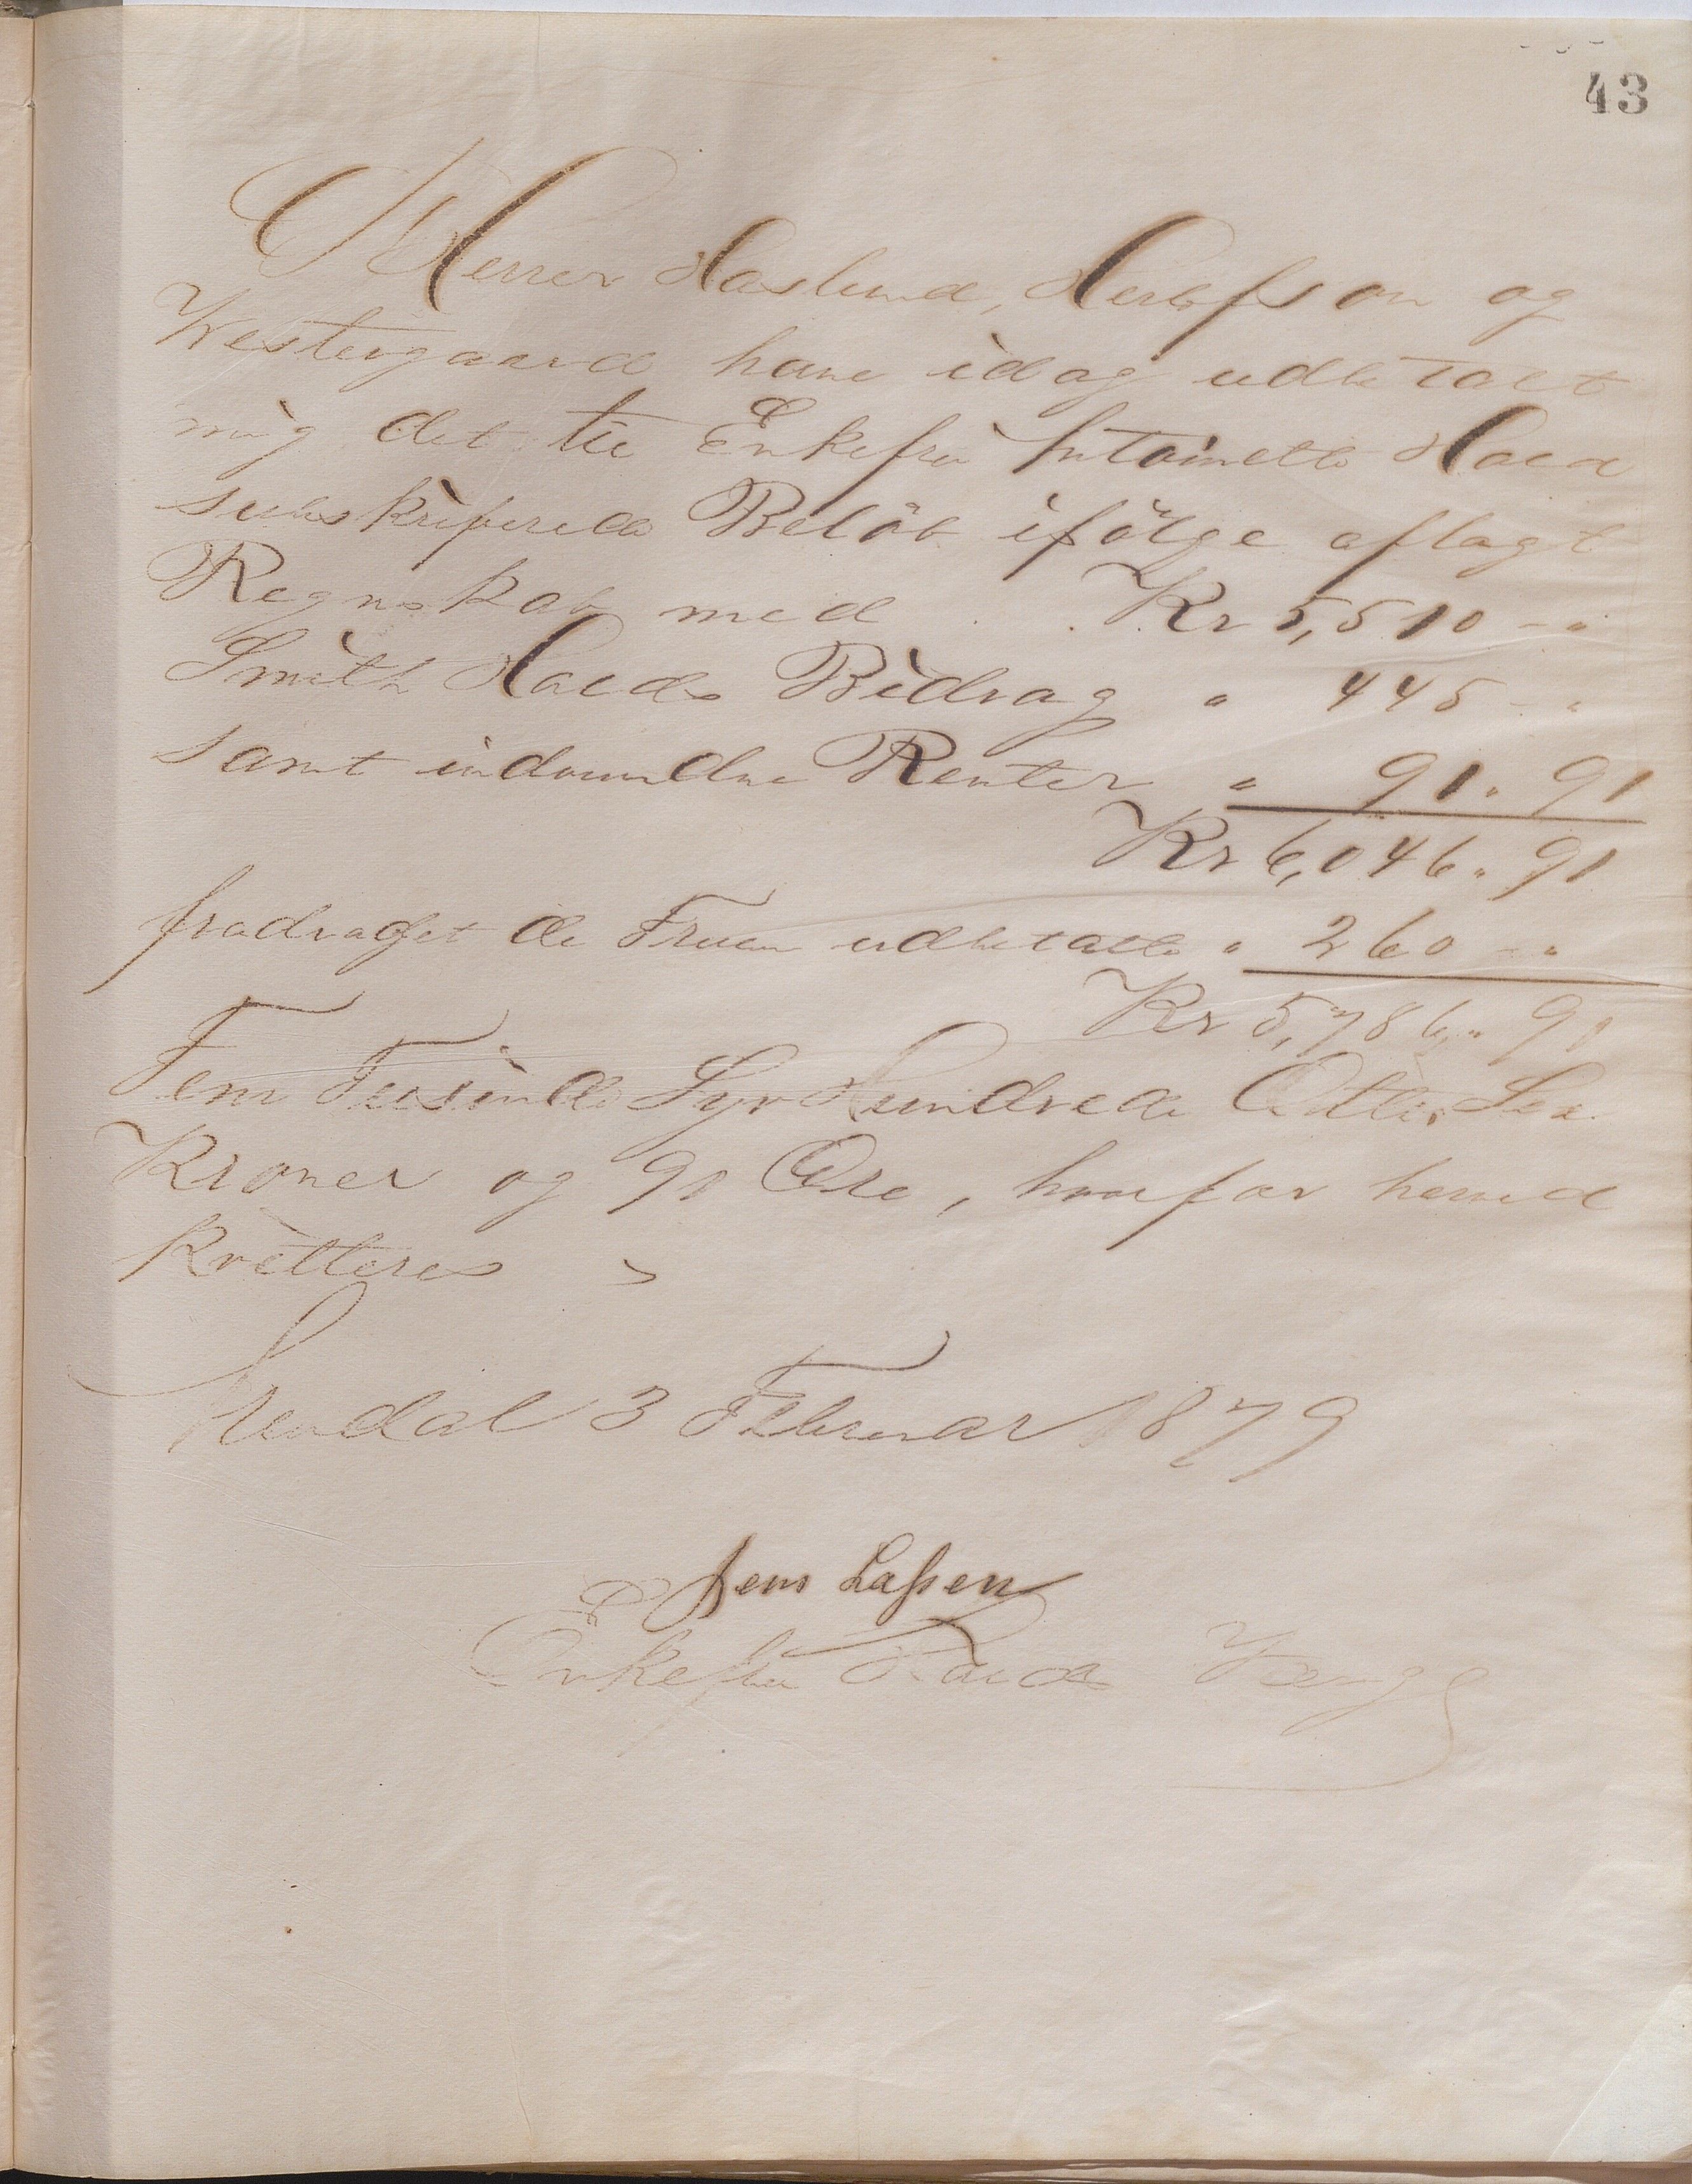 43
Herrer Haslund, Herlofson og
Westergaard have idag udbetalt
mig det til Enkefru Antoinette Hald
subskriberede Belöb ifölge aflagt
Regnskab med . . Kr 5,510 – "
Smith Halds Bidrag " 445 – "
samt indvundne Renter " 91 " 91
Kr 6,046 " 91
fradraget de Fruen udbetalte " 260 – "
Kr 5,786 " 91
Fem Tusinde Syv Hundrede Otti Sex
Kroner og 91 Øre, hvorfor herved
kvitteres
Arendal 3 Februar 1879
Jens Laßen
Enkefru Halds Værge